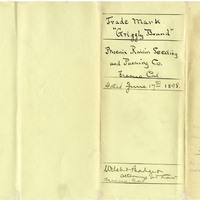 Trade Mark
"Grizzly Brand"
Phoenix Raisin Seeding
and Packing Co.
Fresno Cal.
Dated June 17th 1898.
Attorneys at Law
Fresno, Cal.